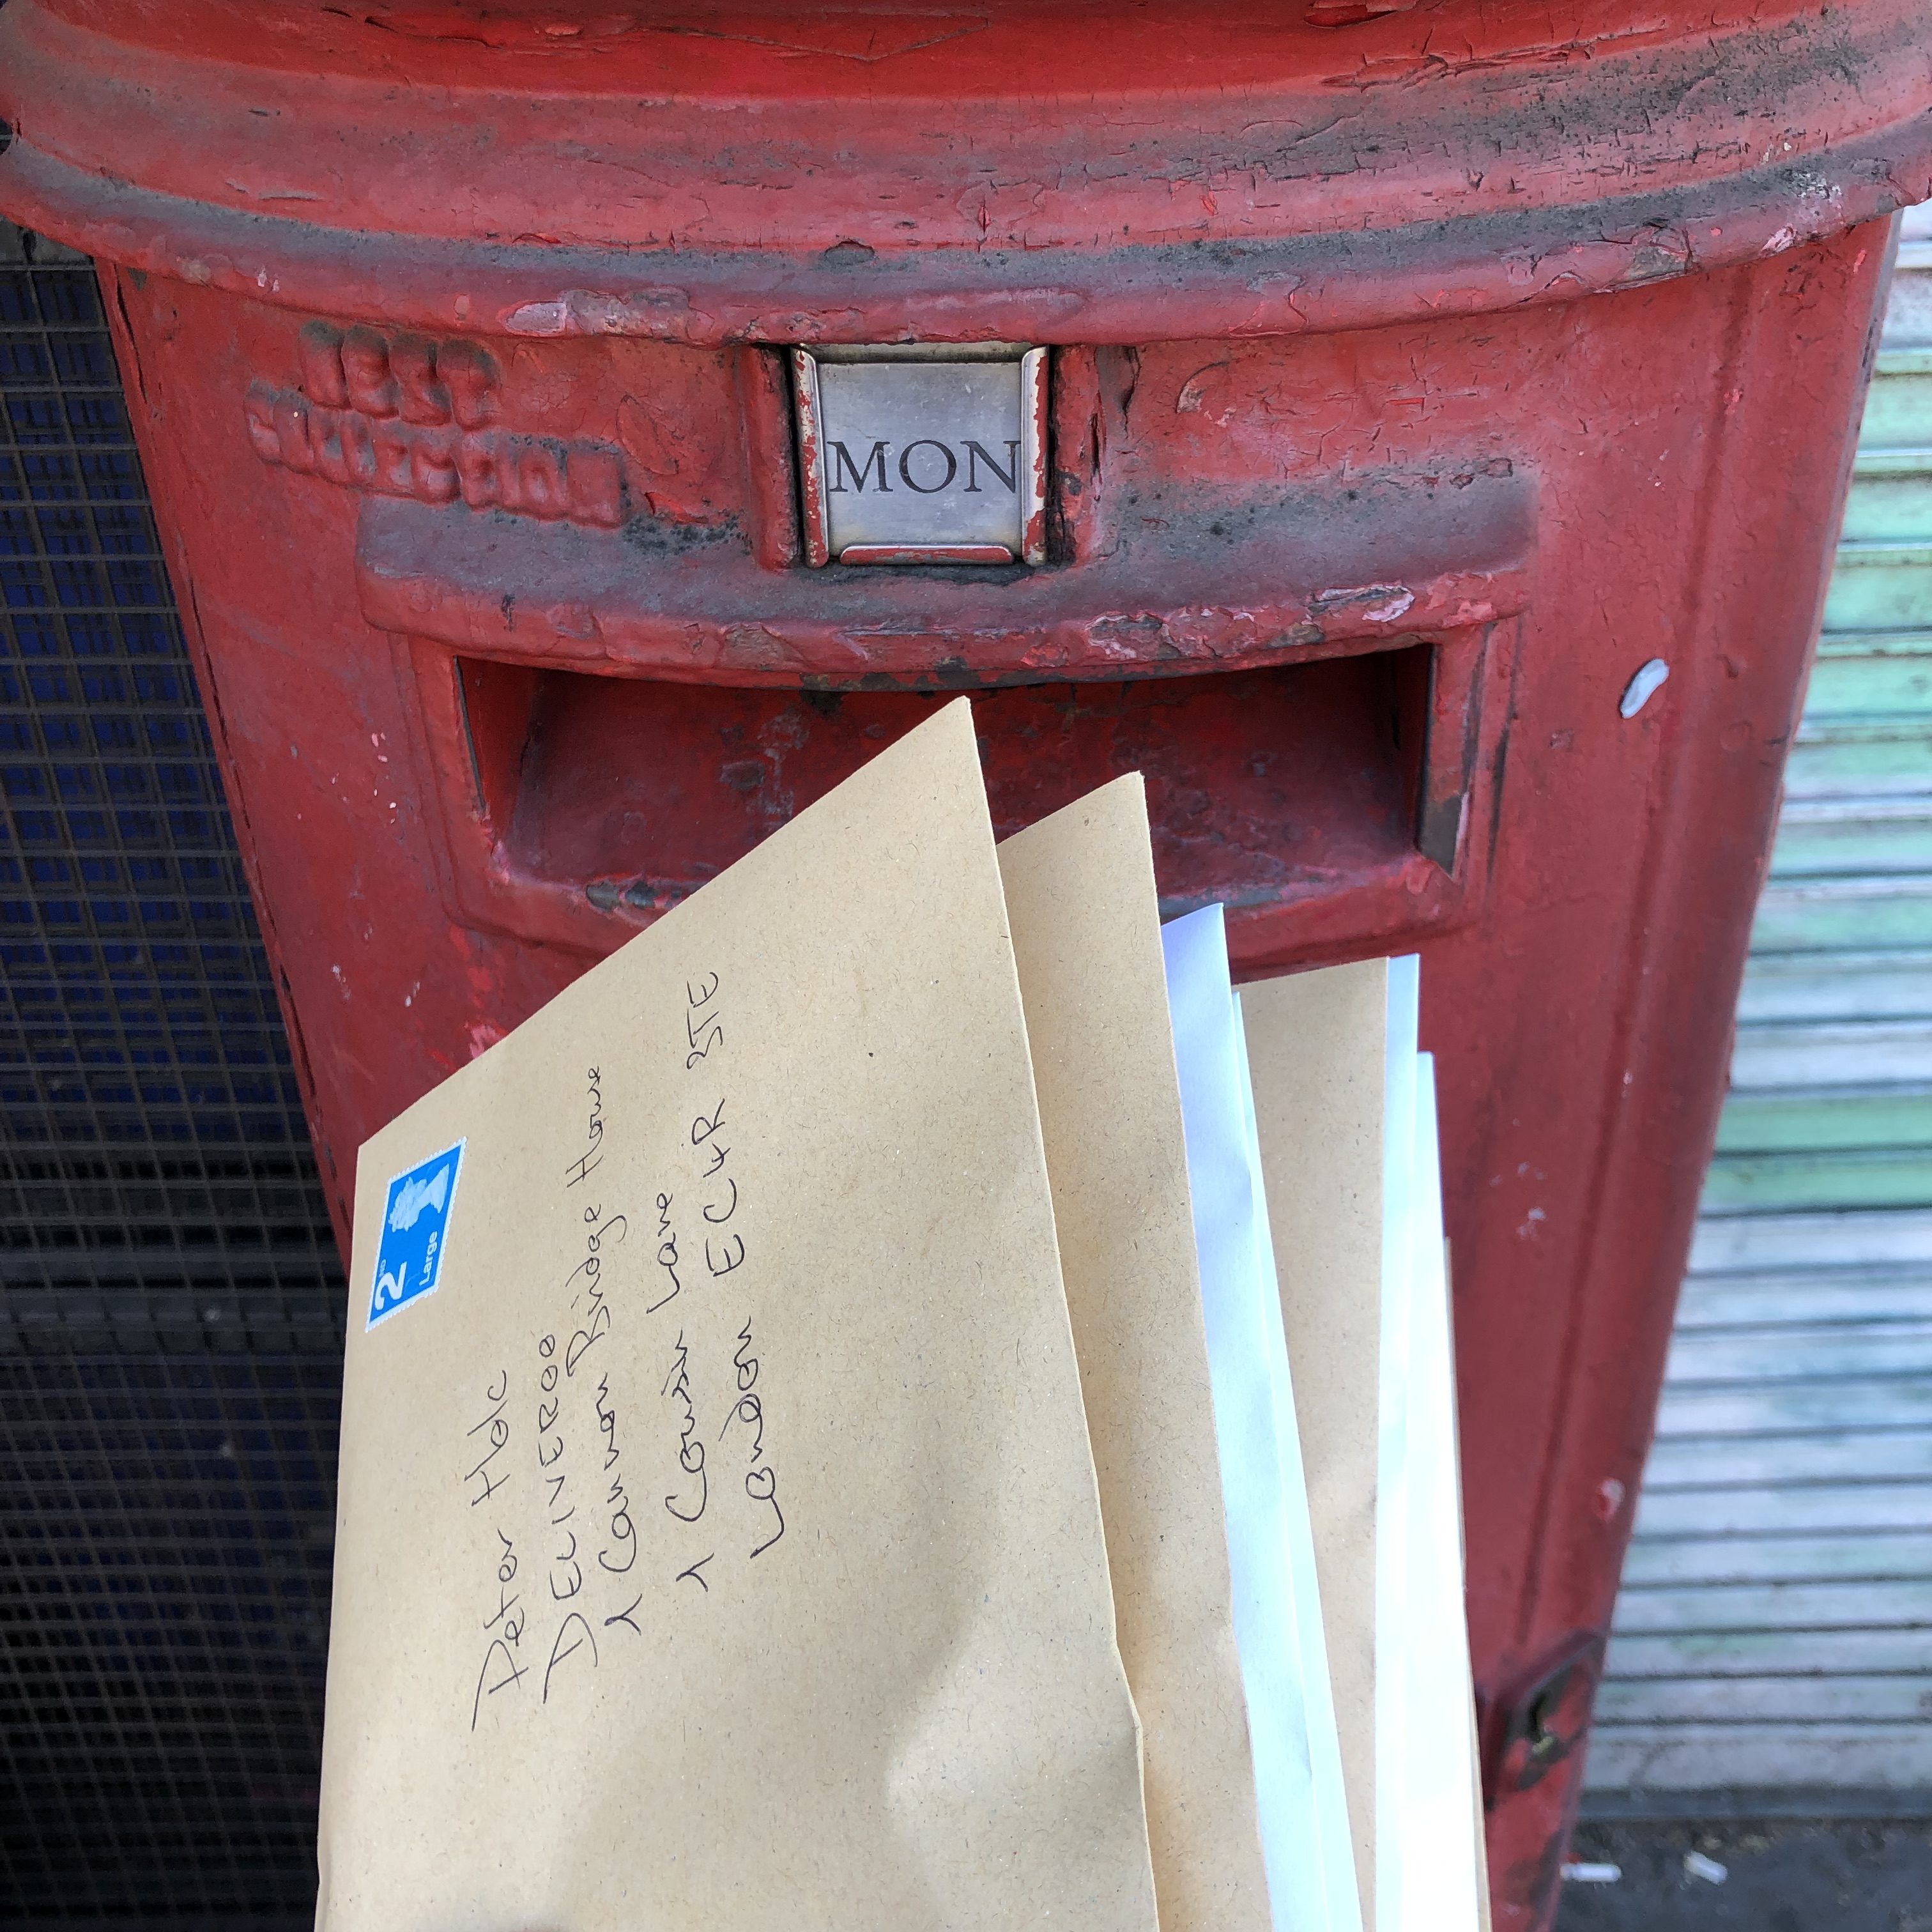 NEXT
COLLECTION
MON
2ND
Large
Peter Hdc
DELIVEROO
1 Cannon Bridge House
1 Cousin Lane
London EC4R 3TE